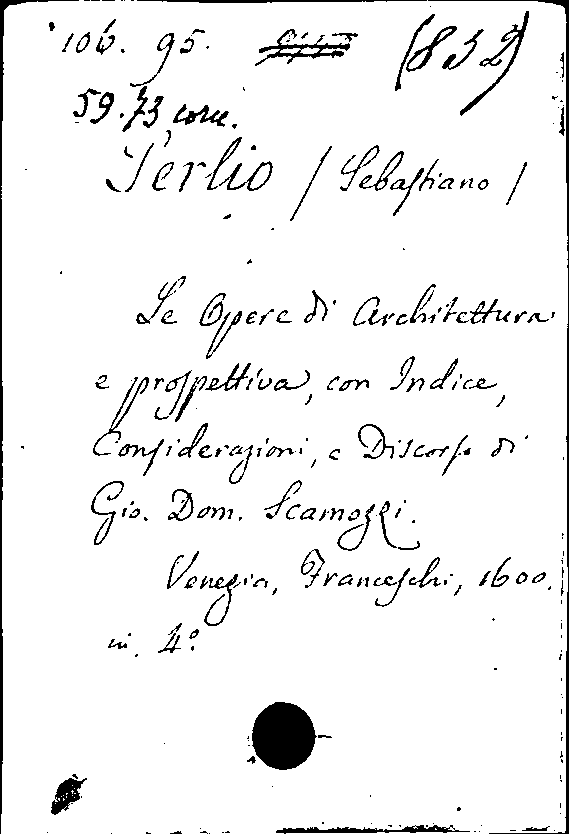 106. 95. (832)
59.73, corr.
Serlio / Sebastiano /
Le Opere di Architettura
e prospettiva, con Indice,
Considerazioni, e Discorso di
Gio. Dom. Scamozzi.
Venezia, Franceschi, 1600.
in. 4º